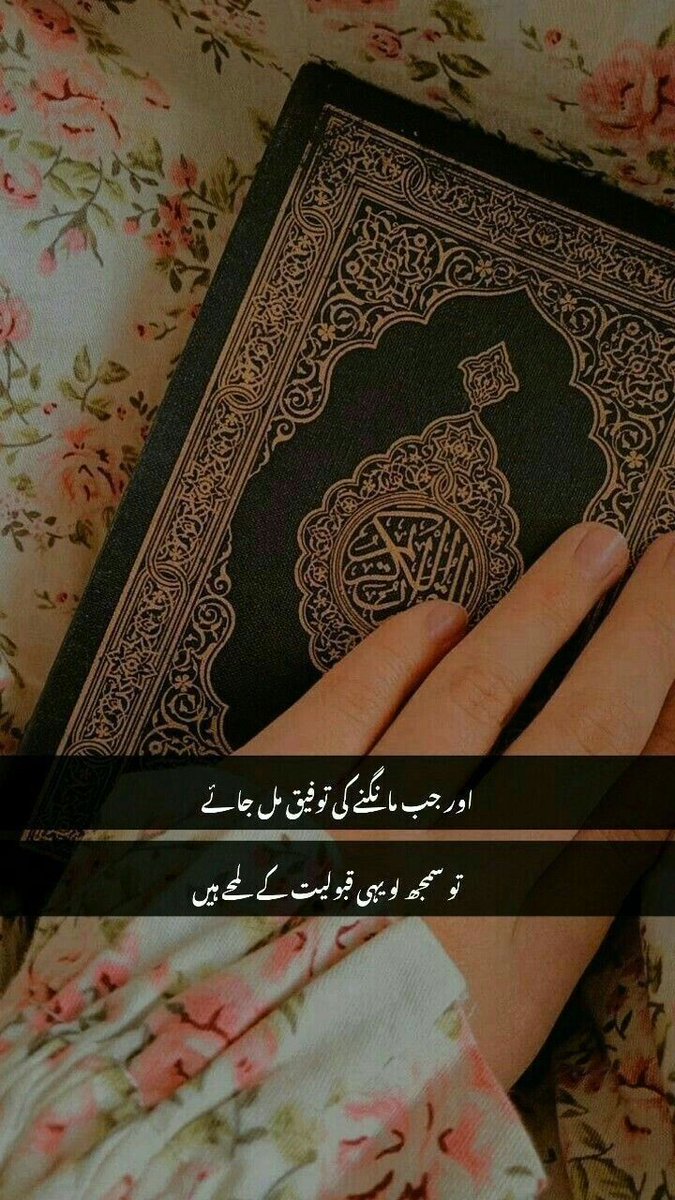 القرآن الكريم
اور جب مانگنے کی توفیق مل جائے
تو سمجھ لو یہی قبولیت کے لمحے ہیں